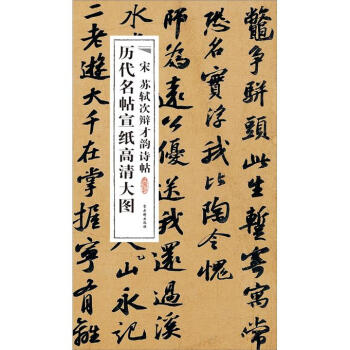 鼈爭駢頭此生蹔寄寓常
恐名實浮我比陶令愧
師為遠公優送我還過溪
永記
二老遊大千在掌握寧有離
宋 苏轼次辩才韵诗帖
历代名帖宣纸高清大图